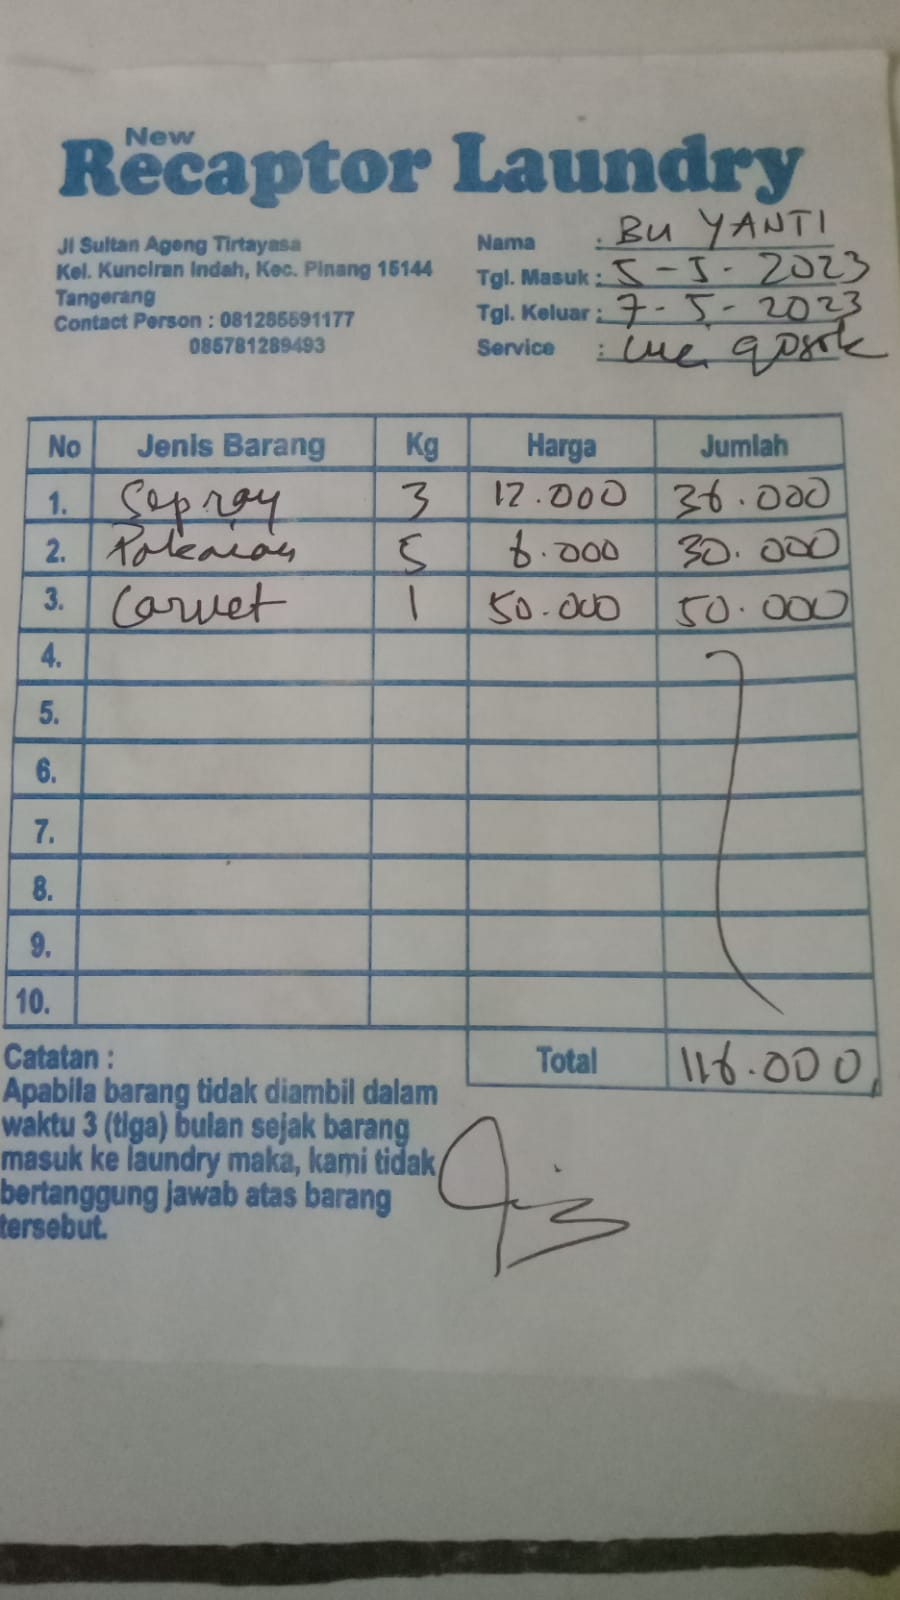 New
Recaptor Laundry
Jl Sultan Ageng Tirtayasa
Kel. Kunciran Indah, Kec. Pinang 15144
Tangerang
Contact Person : 081285591177
085781289493
Nama : BU YANTI
Tgl. Masuk : 5-5-2023
Tgl. Keluar : 7-5-2023
Service : cuci gosok
No Jenis Barang Kg Harga Jumlah
1. Sepray 3 12.000 36.000
2. Pakaian 5 6.000 30.000
3. Carvet 1 50.000 50.000
4.
5.
6.
7.
8.
9.
10.
Total 116.000
Catatan :
Apabila barang tidak diambil dalam
waktu 3 (tiga) bulan sejak barang
masuk ke laundry maka, kami tidak
bertanggung jawab atas barang
tersebut.